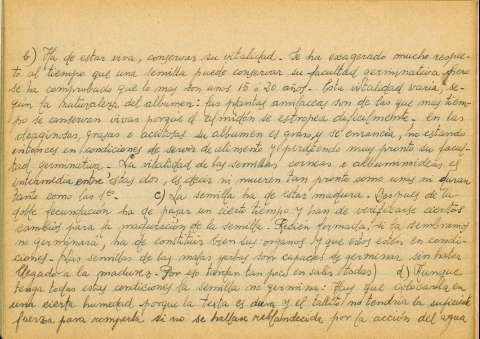 b) Ha de estar viva, conservar su vitalidad - Se ha exagerado mucho respec-
to al tiempo que una semilla puede conservar su facultad germinativa, pero
se ha comprobado que lo mas son unos 15 o 20 años. Esta vitalidad varia, se-
gun la naturaleza del albumen: las plantas amiláceas son de las que mas tiem-
po se conservan vivas porque el almidon se estropea dificilmente. en las
oleaginosas, grasas o aceitosas su albumen es graso y se enrancia, no estando
entonces en condiciones de servir de alimento y perdiendo muy pronto su facul-
tad germinativa. La vitalidad de las semillas corneas o albuminoideas es
intermedia entre estas dos, es decir ni mueren tan pronto como unas ni duran
tanto como las 1ª. c) La semilla ha de estar madura. Despues de la
doble fecundación ha de pasar un cierto tiempo y han de verificarse ciertos
cambios para la maduración de la semilla. Recien formada, si la sembramos
no germinará, ha de constituir bien sus organos y que estos esten en condi-
ciones. Las semillas de las malas yerbas son capaces de germinar sin haber
llegado a la madurez. Por eso tardan tan poco en salir (todas) d) Aunque
tenga todas estas condiciones la semilla no germina: Hay que colocarla en
una cierta humedad porque la testa es dura y el tallito no tendria la suficiente
fuerza para romperla si no se hallase reblandecida por la acción del agua